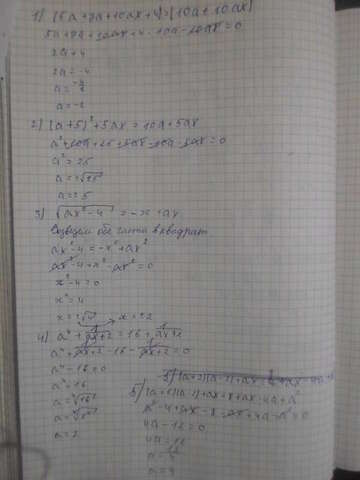 1) (5a+7a+10ax+4)=(10a+10ax)
5a+7a+10ax+4-10a-10ax=0
2a+4
2a=-4
a=-4/2
a=-2
2) (a+5)²+5ax=10a+5ax
a²+10a+25+5ax-10a-5ax=0
a²=25
a=√25
a=5
3) √ax²-4=-x+ax
Возводим обе части в квадрат
ax²-4=-x²+ax²
ax²-4+x²-ax²=0
x²-4=0
x²=4
x=√4 x=±2
4) a⁴+1/ax+2=16+1/ax+2
a⁴+1/ax+2-16-1/ax+2=0
a⁴-16=0
a⁴=16
a=⁴√16
a=2
4a-12=0
4a=12